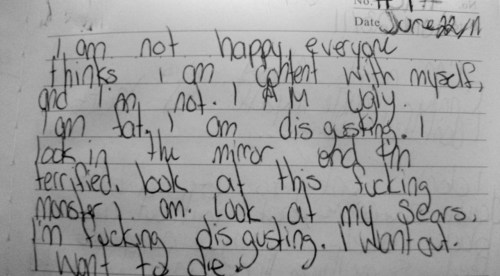 No.
Date June 22/11
I am not happy, everyone
thinks i am content with myself,
and I'm not. I AM ugly.
I am fat. I am disgusting. I
look in the mirror and I'm
terrified. look at this fucking
monster I am. Look at my scars.
I'm fucking disgusting. I want out.
I want to die.